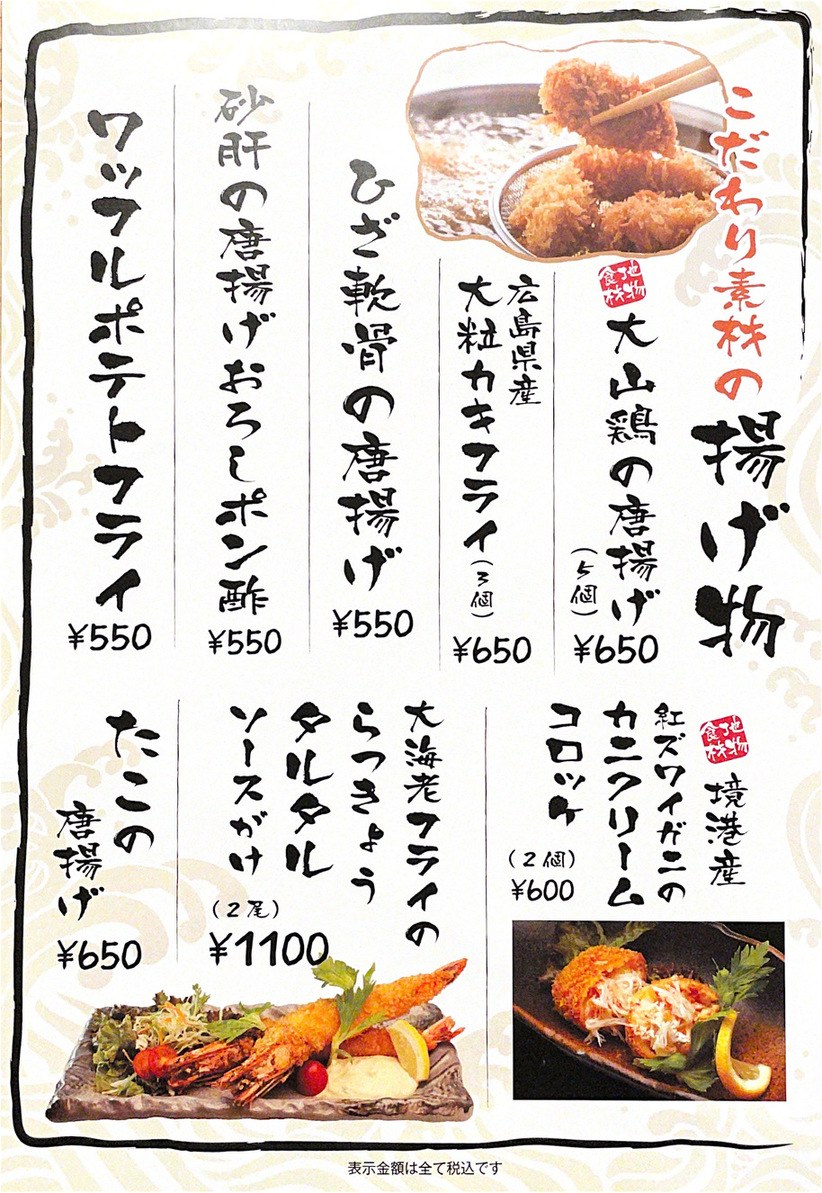 こだわり素材の
揚げ物
地物食材
大山鶏の唐揚げ
(5個)
¥650
広島県産
大粒カキフライ(3個)
¥650
ひざ軟骨の唐揚げ
¥550
砂肝の唐揚げおろしポン酢
¥550
ワッフルポテトフライ
¥550
地物食材
境港産
紅ズワイガニの
カニクリーム
コロッケ
(2個)
¥600
大海老フライの
らっきょう
タルタル
ソースがけ
(2尾)
¥1100
たこの
唐揚げ
¥650
表示金額は全て税込です